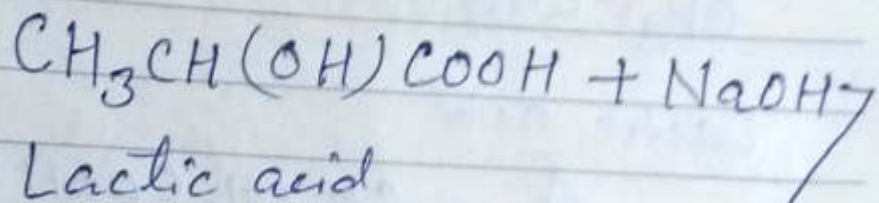 CH₃CH(OH)COOH + NaOH
Lactic acid